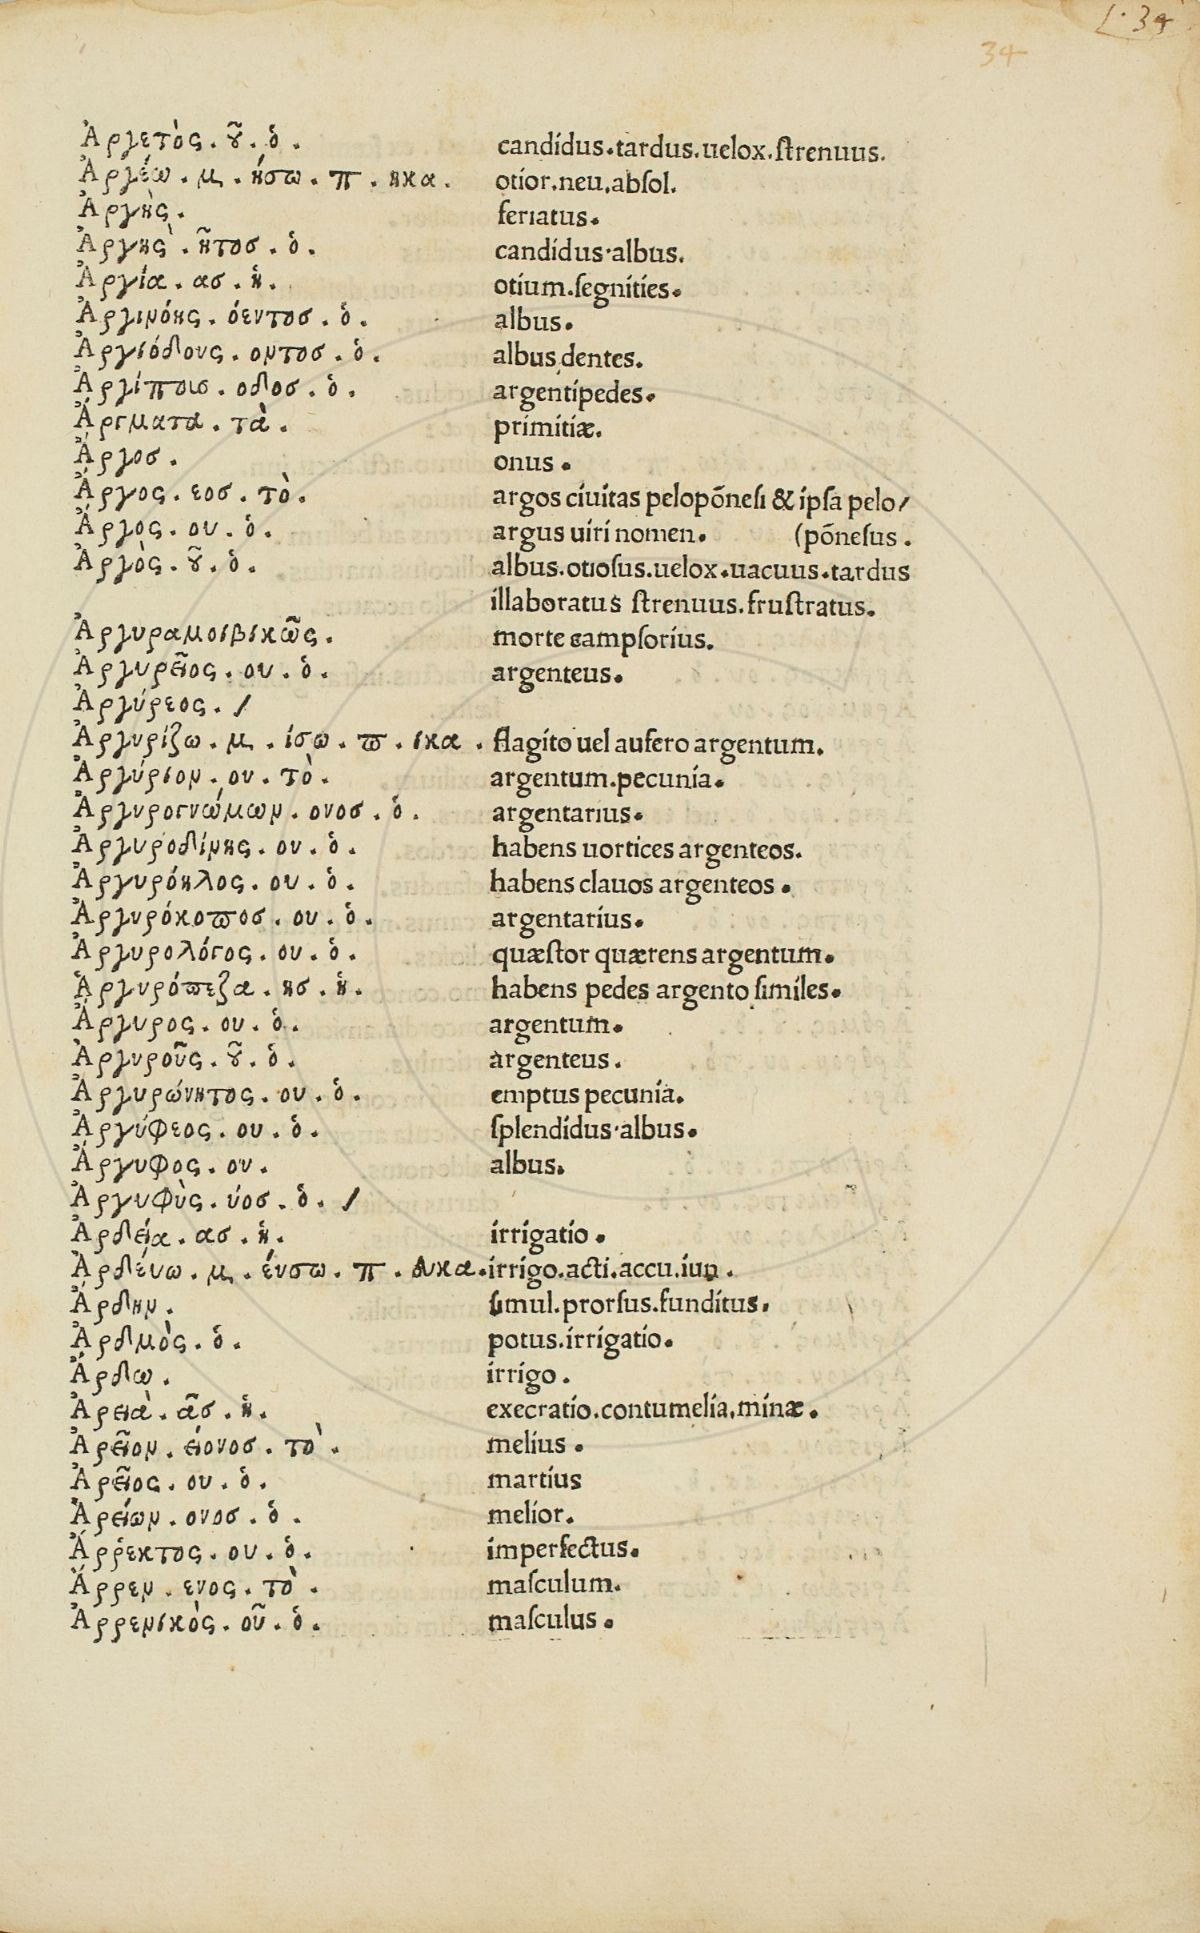 L. 34
34
Ἀργετὸς . ȣ͂ . ὁ . candidus.tardus.uelox.ſtrenuus.
Ἀργέω . μ . ήσω . π . ηκα . otior.neu.abſol.
Ἀργὴς . feriatus.
Ἀργὴς . ῆτοσ . ὁ . candidus·albus.
Ἀργία . ασ . ἡ . otium.ſegnities.
Ἀργινόης . όεντοσ . ὁ . albus.
Ἀργιόδους . οντοσ . ὁ . albus dentes.
Ἀργίποισ . οδοσ . ὁ . argentipedes.
Ἄργματα . τὰ . primitiæ.
Ἄργοσ . onus .
Ἄργος . εοσ . τὸ . argos ciuitas pelopõneſi & ipſa pelo/
Ἄργος . ου . ὁ . argus uiri nomen. (põneſus .
Ἀργὸς . ȣ͂ . ὁ . albus.otioſus.uelox.uacuus.tardus
illaboratus ſtrenuus.fruſtratus.
Ἀργυραμοιβικῶς . morte campſorius.
Ἀργυρεῖος . ου . ὁ . argenteus.
Ἀργύρεος . /
Ἀργυρίζω . μ . ίσω . ϖ . ικα . flagito uel aufero argentum.
Ἀργύριον . ου . τὸ . argentum.pecunia.
Ἀργυρογνώμων . ονοσ . ὁ . argentarius.
Ἀργυροδίνης . ου . ὁ . habens uortices argenteos.
Ἀργυρόηλος . ου . ὁ . habens clauos argenteos .
Ἀργυρόκοϖοσ . ου . ὁ . argentarius.
Ἀργυρολόγος . ου . ὁ . quæſtor quærens argentum.
Ἀργυρόϖεζα . ησ . ἡ . habens pedes argento ſimiles.
Ἄργυρος . ου . ὁ . argentum.
Ἀργυροῦς . ȣ͂ . ὁ . argenteus .
Ἀργυρώνητος . ου . ὁ . emptus pecunia.
Ἀργύφεος . ου . ὁ . ſplendidus·albus.
Ἄργυφος . ου . albus.
Ἀργυφὺς . ύοσ . ὁ . /
Ἀρδεία . ασ . ἡ . irrigatio .
Ἀρδεύω . μ . εύσω . π . ευκα . irrigo.acti.accu.iun .
Ἄρδην . ſimul.prorſus.funditus.
Ἀρδμὸς . ὁ . potus.irrigatio.
Ἄρδω . irrigo .
Ἀρειὰ . ᾶσ . ἡ . execratio.contumelia.minæ.
Ἀρεῖον . είονοσ . τὸ . melius .
Ἀρεῖος . ου . ὁ . martius
Ἀρείων . ονοσ . ὁ . melior.
Ἄρῥεκτος . ου . ὁ . imperfectus.
Ἄρρεν . ενος . τὸ . maſculum.
Ἀρρενικὸς . οῦ . ὁ . maſculus .